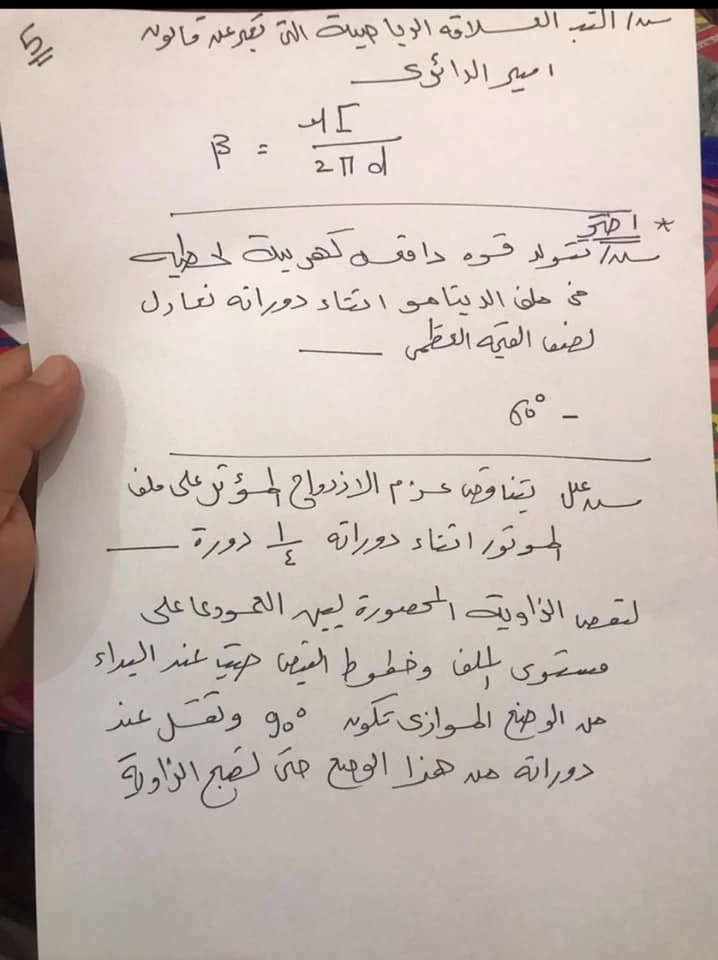 5
س/ اكتب العلاقه الرياضية التى تعبر عن قانون
امبير الدائرى
β = μI / 2πd
* اختر
س/ تتولد قوه دافعه كهربية لحظيه
فى ملف الدينامو اثناء دورانه تعادل
نصف القيمة العظمى ــــ
- 60°
س علل يتناقص عزم الازدواج المؤثر على ملف
الموتور اثناء دورانه 1/4 دورة ــــ
لنقص الزاوية المحصورة بين العمودى على
مستوى الملف وخطوط الفيض حيث عند البداء
من الوضع الموازى تكون 90° وتقل عند
دورانه من هذا الوضع حتى تصبح الزاوية